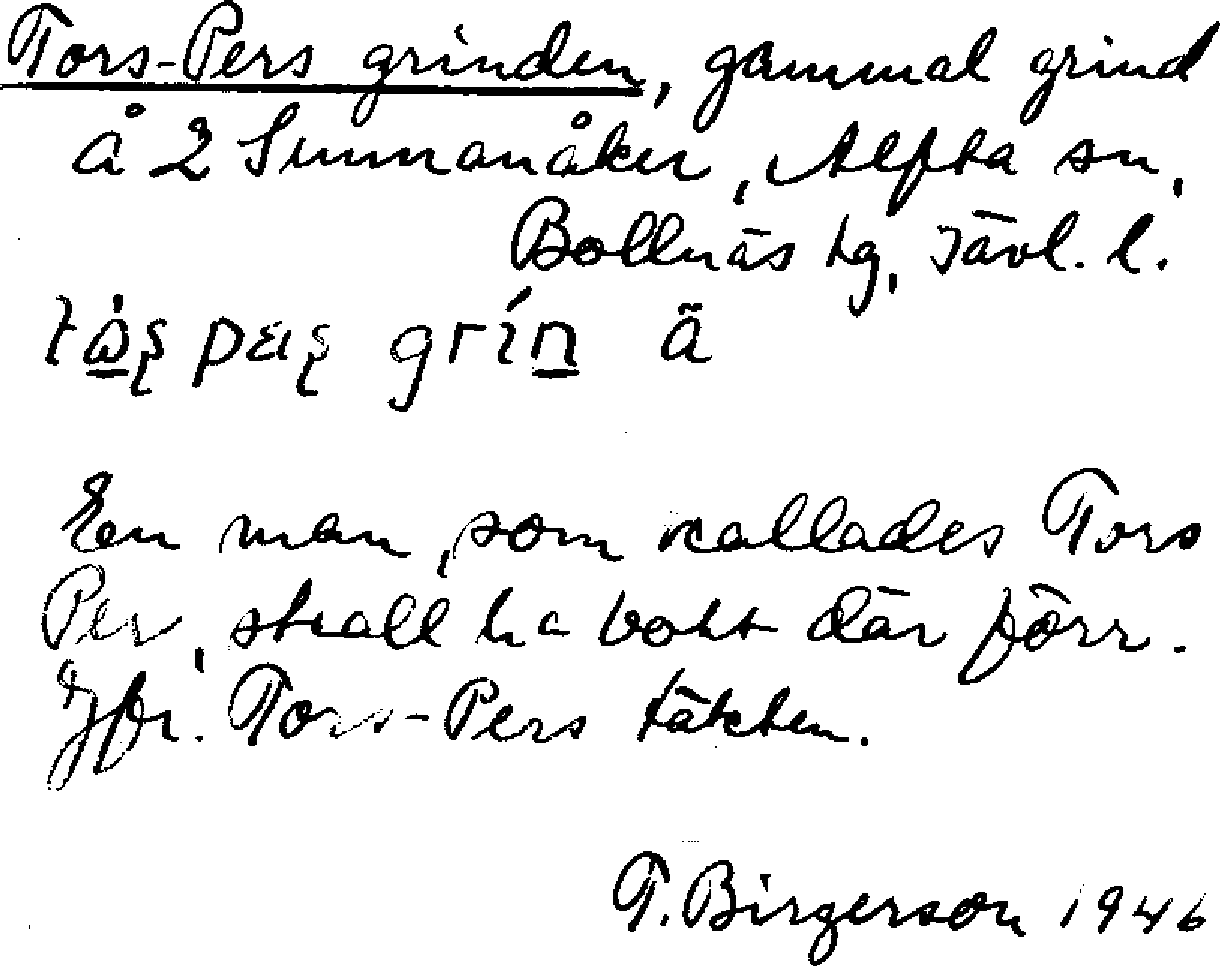 Tors-Pers grinden, gammal grind
å 2 Sunnanåker, Alfta sn,
Bollnäs tg, Jävl. l.
grín ã
En man, som kallades Tors
Per, skall ha bott där förr.
Jfr. Tors-Pers täkten.
T. Birgerson 1946